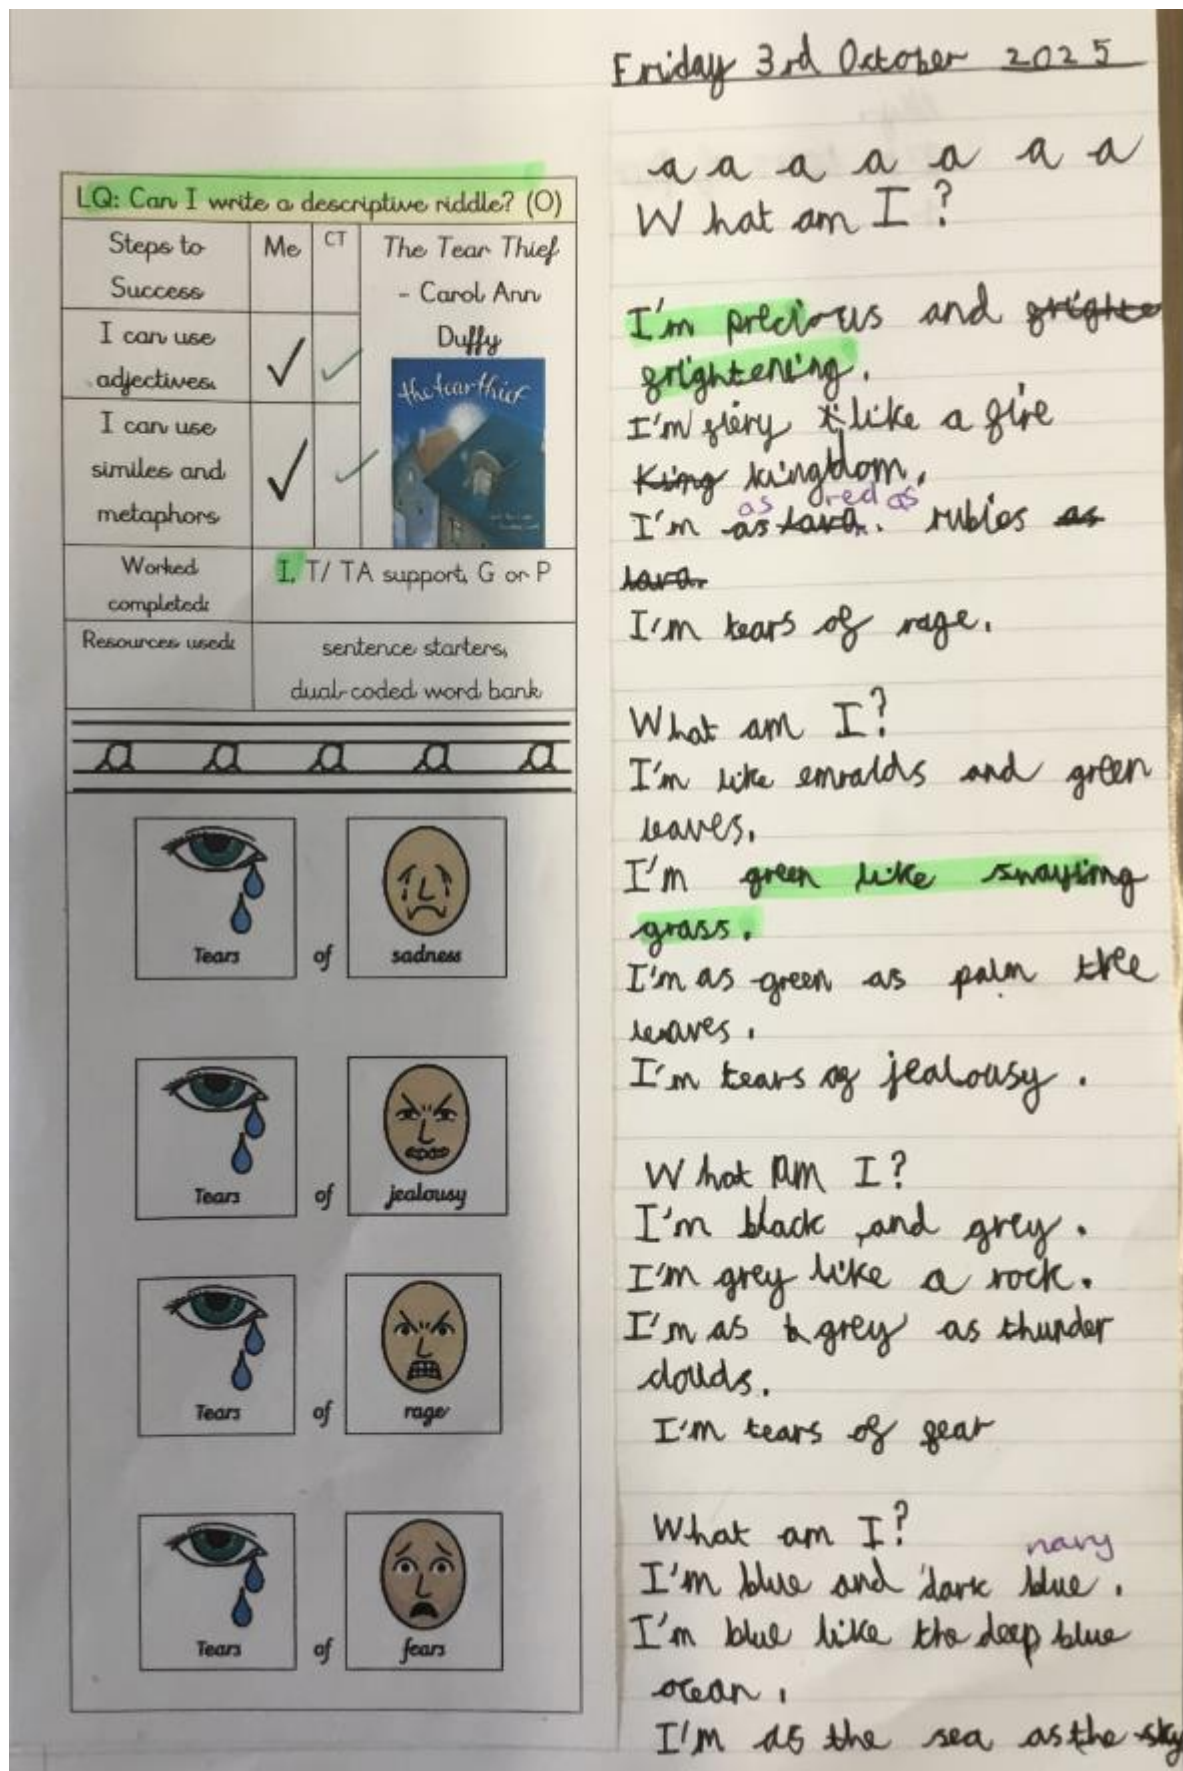 LQ: Can I write a descriptive riddle? (O)
Steps to
Success
Me
CT
The Tear Thief
- Carol Ann
Duffy
I can use
adjectives.
the tear thief
I can use
similes and
metaphors
Worked
completed:
I, T/ TA support, G or P
Resources used:
sentence starters,
dual-coded word bank
a a a a a
Tears of sadness
Tears of jealousy
Tears of rage
Tears of fears
Friday 3rd October 2025
a a a a a a a
What am I?
I'm precious and frighte
frightening.
I'm fiery like a fire
King kingdom.
as red as
I'm as lava. rubies as
lava.
I'm tears of rage.
What am I?
I'm like emralds and green
leaves.
I'm green like swaying
grass.
I'm as green as palm tree
leaves.
I'm tears of jealousy.
What am I?
I'm black and grey.
I'm grey like a rock.
I'm as grey as thunder
clouds.
I'm tears of fear
What am I?
navy
I'm blue and dark blue.
I'm blue like the deep blue
ocean.
I'm as the sea as the sky